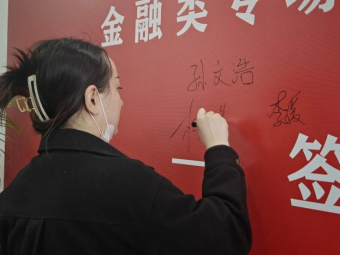 金融类专场
孙文浩
李媛
一
签